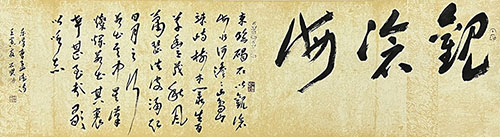 觀滄海
東臨碣石以觀滄
海水何澹澹山島
竦峙樹木叢生百
草豐茂秋風
蕭瑟洪波湧起
日月之行
若出其中星漢
燦爛若出其裏
幸甚至哉歌
以詠志